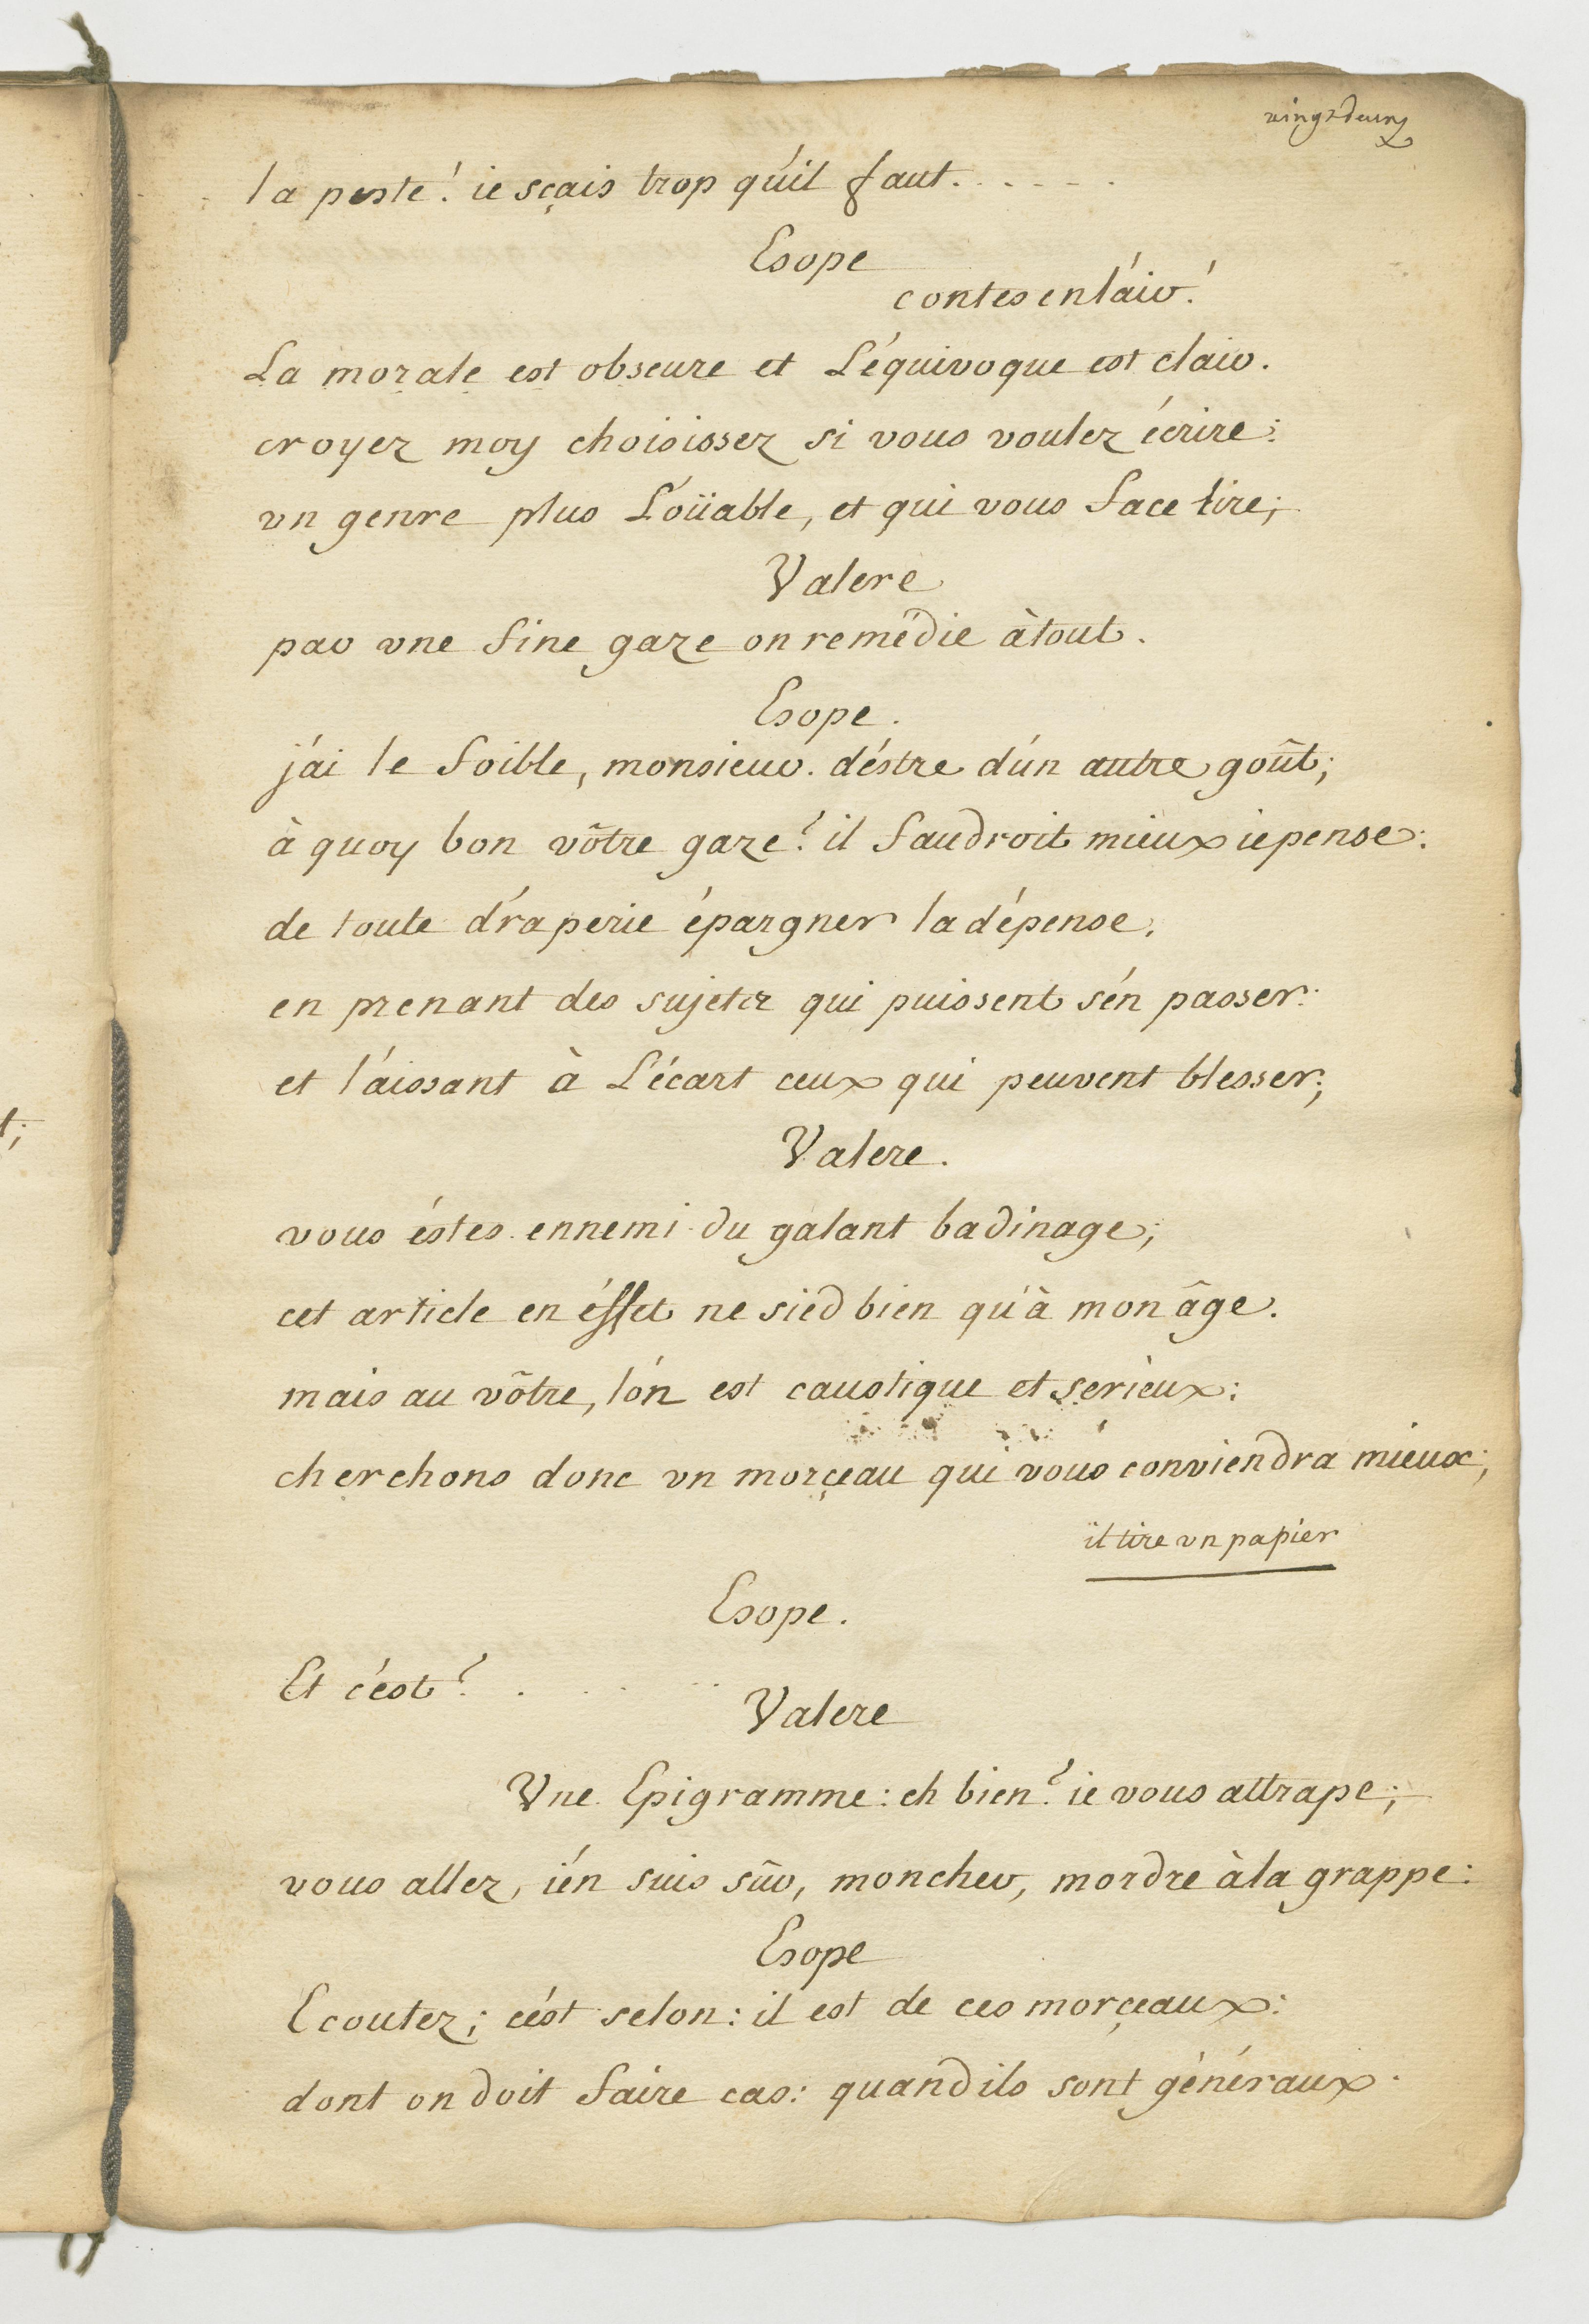 vingt deux
la peste! ie sçais trop qu'il faut......
Esope
contes en l'air!
La morale est obscure et L'équivoque est clair.
croyez moy choisissez si vous voulez écrire:
vn genre plus Loüable, et qui vous face lire;
Valere
par vne fine gaze on remédie à tout.
Esope.
j'ai le foible, monsieur. d'éstre d'un autre goût;
à quoy bon vôtre gaze? il faudroit mieux ie pense:
de toute draperie épargner la dépense.
en prenant des sujets qui puissent s'en passer:
et laissant à L'écart ceux qui peuvent blesser;
Valere.
vous éstes ennemi du galant badinage;
cet article en éffet ne sied bien qu'à mon âge.
mais au vôtre, l'on est caustique et serieux:
cherchons donc vn morçeau qui vous conviendra mieux;
il tire vn papier
Esope.
Et c'est? . . . . .
Valere
Vne Epigramme: eh bien? ie vous attrape;
vous allez, i'en suis sûr, mon cher, mordre à la grappe:
Esope
Ecoutez; c'est selon: il est de ces morçeaux:
dont on doit faire cas: quand ils sont généraux.
t;